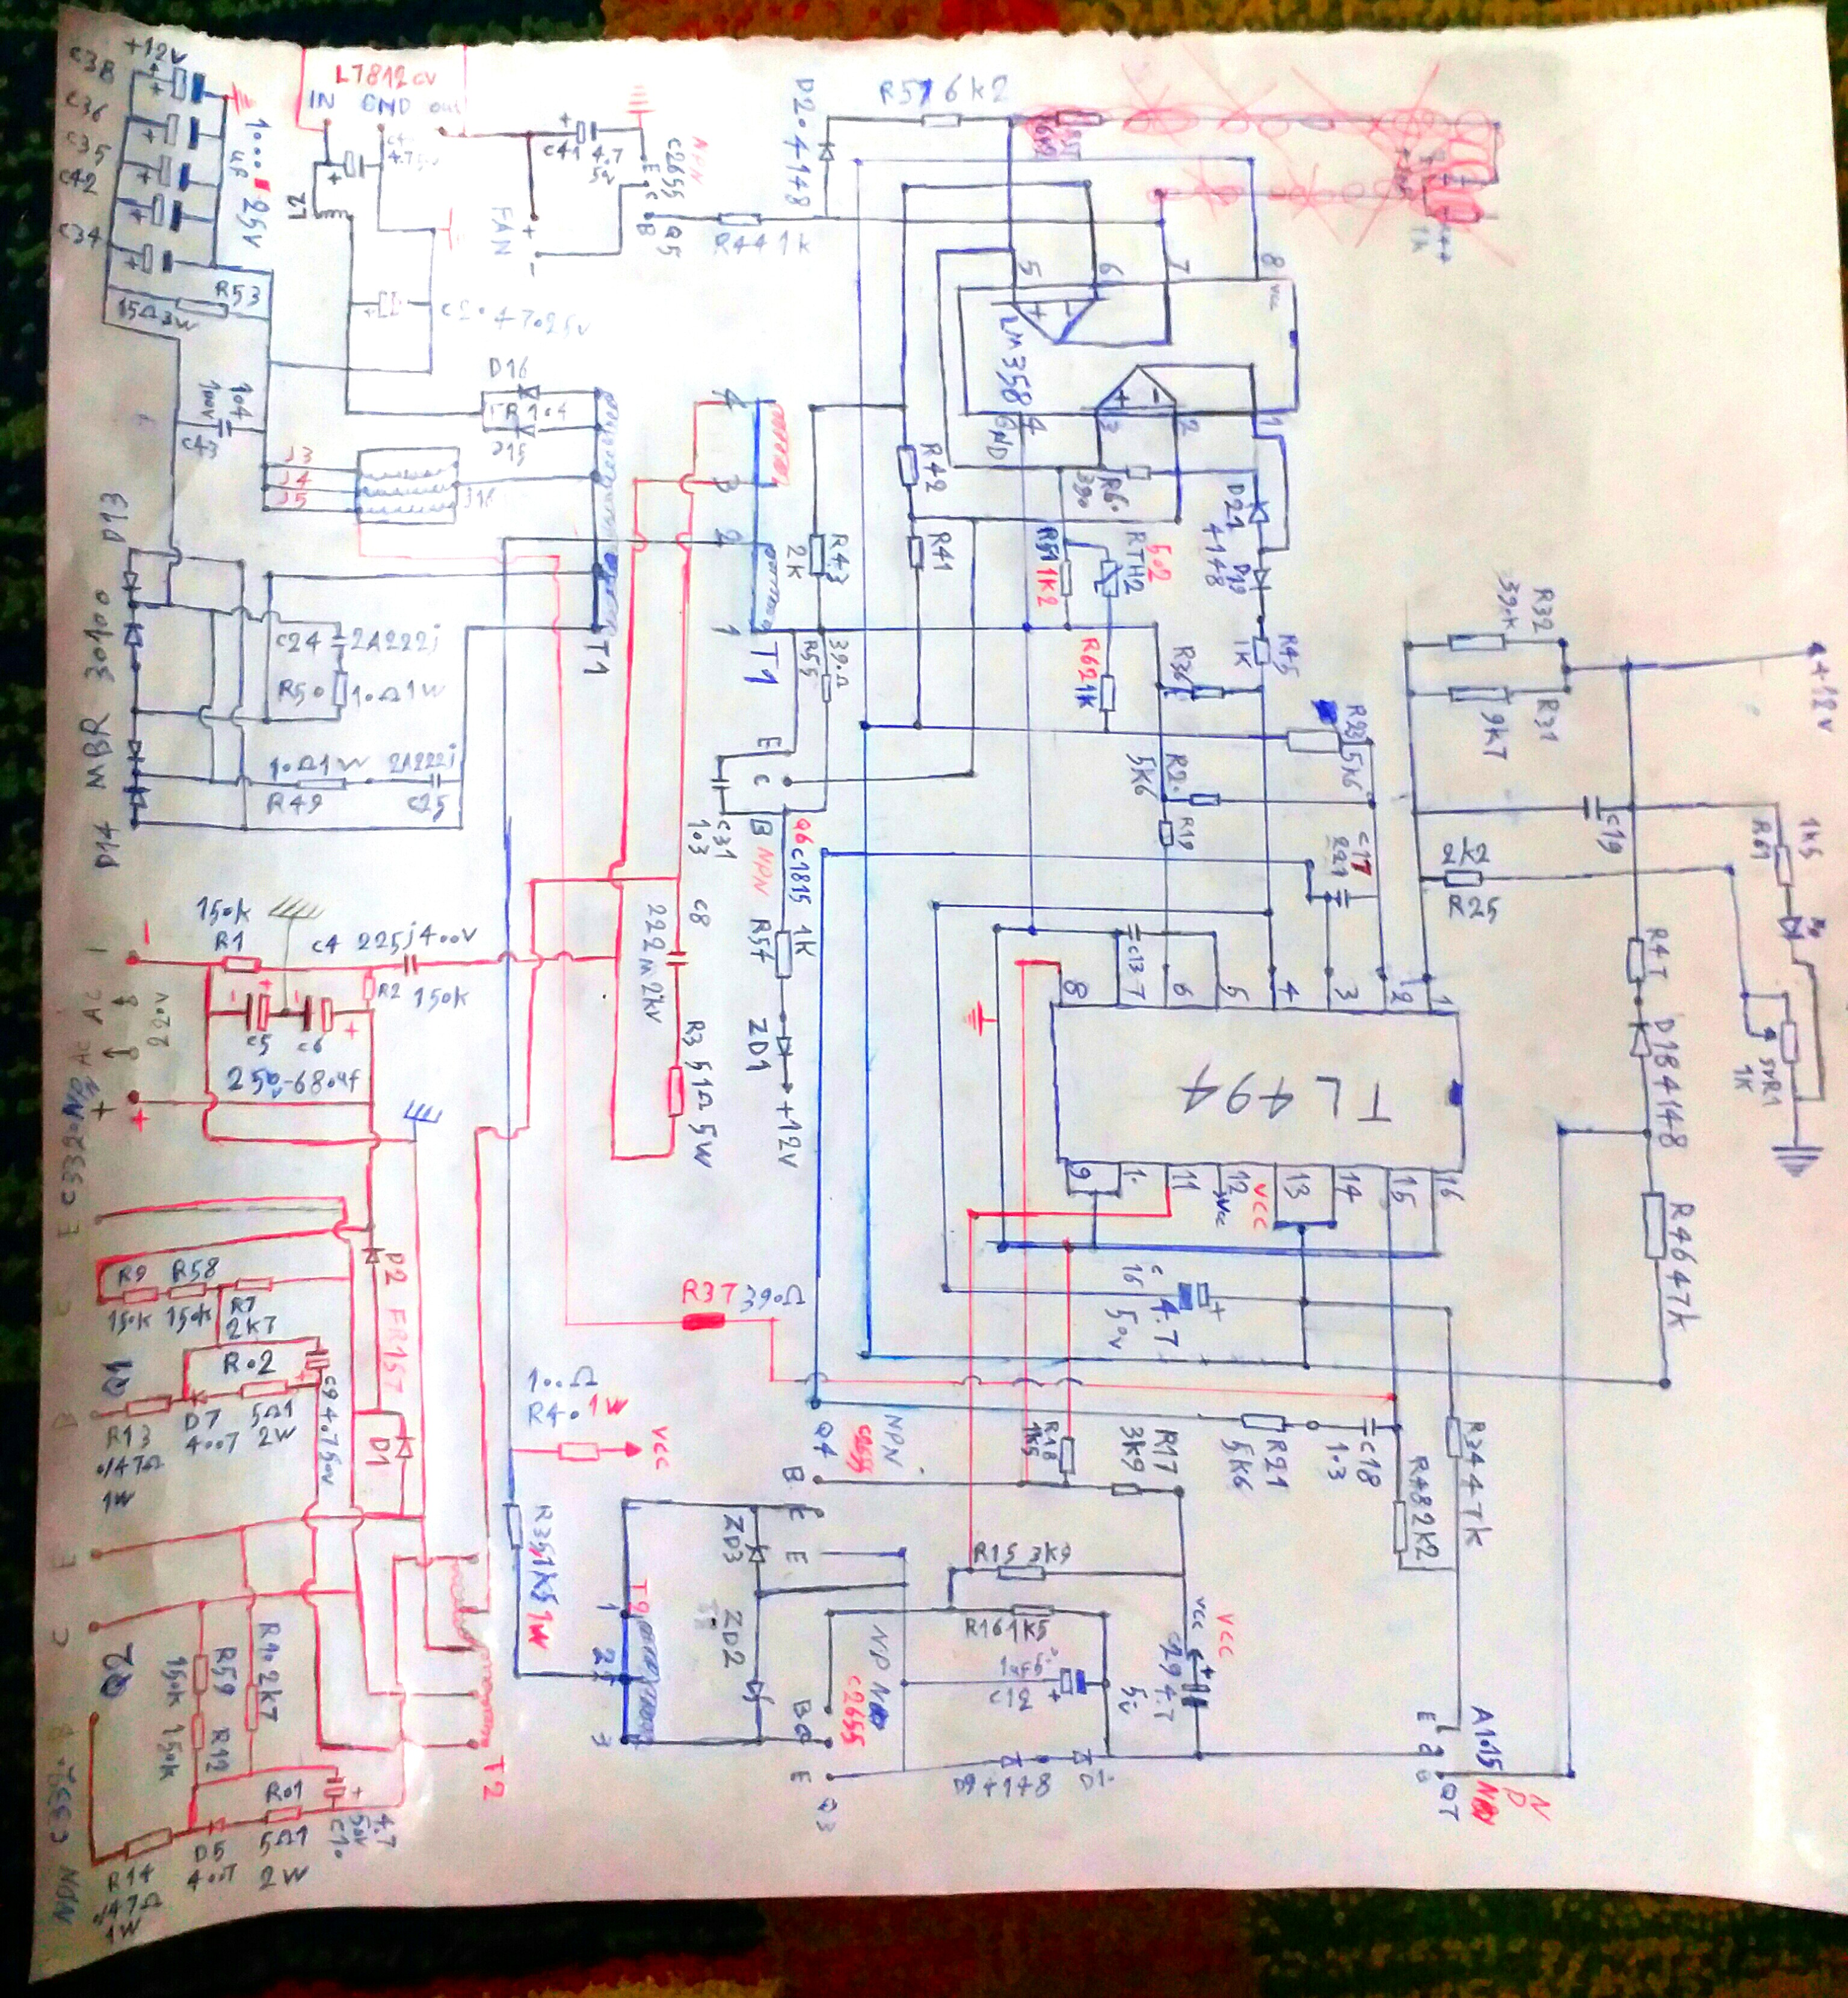 +12v
C38
C36
C35
C42
C34
1000µF 25V
R53
15Ω3W
LT812cv
IN GND out
L2
C41 4.7
50
FAN
+
-
NPN
C2655
E
C
B
Q5
R44 1k
D20 4148
R57 6k2
470 25v
D16
FR104
D15
104
100V
C43
J3
J4
J5
J16
D13
MBR 30100
D14
C24 2A222j
R50 10Ω1W
10Ω1W
R49
2A222j
C25
T1
4
3
2
1
T1
8
vcc
7
6
5
LM358
4
GND
3
2
1
R42
R41
R43
2K
R60
390
D21
4148
D19
RTH2
502
R51 1K2
R62 1K
R45
1K
R36
R55
390Ω
R23 5K6
R20
5K6
R19
C17
221
R32
39k
R31
9k7
+12v
C19
1k5
R61
2k2
R25
R47
D18 4148
SVR1
1K
R46 47k
E
C
B
Q6 C1815
NPN
C31
103
1K
R54
ZD1
+12V
C8
222m2kV
R3 51Ω5W
8
7
6
5
4
3
2
1
C13
TL494
9
11
12
13
14
15
16
Vcc
VCC
C16 4.7
50v
150k
R1
C4 225j400V
R2 150k
C5 C6
250-680uf
AC
AC
220V
-
+
R37 390Ω
100Ω
R40 1W
VCC
R35 1K5 1W
D2 FR157
D1
R9 R58
150k 150k
R7
2k7
R02
5Ω1
2W
C9 4.7 50v
D7
4007
R13
.47Ω
1W
Q1
E
C
B
C3320
E
C
Q2
R59
150k
R12
150k
R10 2k7
R01
5Ω1
2W
4.7
50v
C10
D5
4007
R14
.47Ω
1W
NPN C3320
T2
T2
1
2
3
ZD3
ZD2
Q4
C2655
NPN
B
E
E
R18
1k5
R17
3k9
R21
5k6
C18
103
R48 2K2
R34 47k
R15 3K9
R16 1K5
VCC
VCC
C29 4.7
1uf
C12
NPN
C2655
B
C
E
Q3
D9 4148
D1
A1015
E
Q7